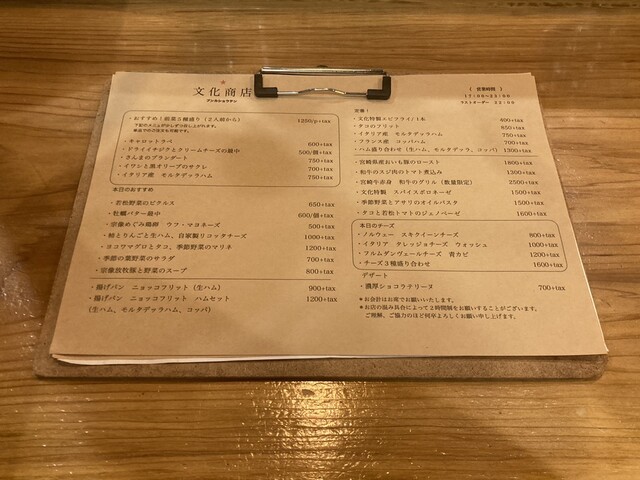 文化商店
ブンカショウテン
・おすすめ！前菜5種盛り（2人前から） 1250/p+tax
下記のメニューが少しずつ召し上がれます。
単品でのご注文も可能です。
・キャロットラペ 600+tax
・ドライイチジクとクリームチーズの最中 500/個+tax
・さんまのブランダード 750+tax
・イワシと黒オリーブのサクレ 700+tax
・イタリア産 モルタデッラハム 750+tax
本日のおすすめ
・若松野菜のピクルス 650+tax
・牡蠣バター最中 600/個+tax
・宗像めぐみ鶏卵 ウフ・マヨネーズ 500+tax
・柿とりんごと生ハム、自家製リコッタチーズ 1000+tax
・ヨコワマグロとタコ、季節野菜のマリネ 1200+tax
・季節の葉野菜のサラダ 700+tax
・宗像放牧豚と野菜のスープ 800+tax
・揚げパン ニョッコフリット（生ハム） 900+tax
・揚げパン ニョッコフリット ハムセット 1200+tax
（生ハム、モルタデッラハム、コッパ）
（ 営業時間 ）
17:00～23:00
ラストオーダー 22:00
定番！
・文化特製エビフライ/1本 400+tax
・タコのフリット 850+tax
・イタリア産 モルタデッラハム 750+tax
・フランス産 コッパハム 700+tax
・ハム盛り合わせ（生ハム、モルタデッラ、コッパ） 1300+tax
・宮崎県産おいも豚のロースト 1800+tax
・和牛のスジ肉のトマト煮込み 1300+tax
・宮崎牛赤身 和牛のグリル（数量限定） 2500+tax
・文化特製 スパイスボロネーゼ 1500+tax
・季節野菜とアサリのオイルパスタ 1500+tax
・タコと若松トマトのジェノベーゼ 1600+tax
本日のチーズ
・ノルウェー スキクイーンチーズ 800+tax
・イタリア タレッジョチーズ ウォッシュ 1000+tax
・フルムダンヴェールチーズ 青カビ 1200+tax
・チーズ3種盛り合わせ 1600+tax
デザート
・濃厚ショコラテリーヌ 700+tax
＊お会計はお席でお願いいたします。
＊お店の混み具合によって2時間制をお願いすることがございます。
ご理解、ご協力のほど何卒よろしくお願い申し上げます。